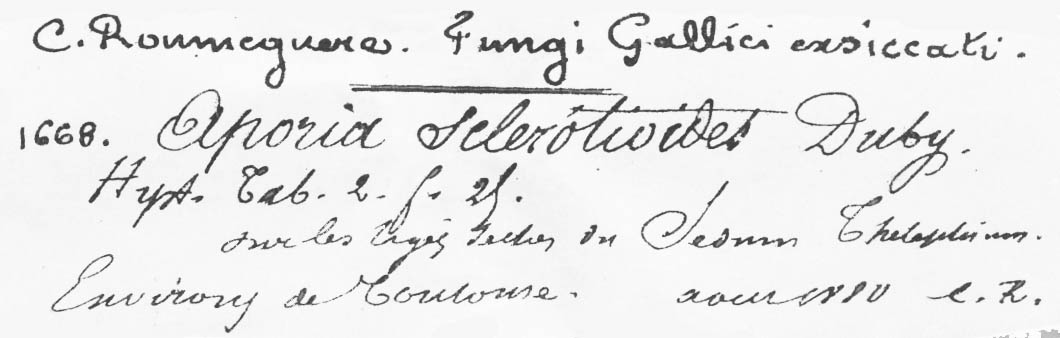 C. Roumeguere. Fungi Gallici exsiccati.
1668. Aporia sclerotioides Duby.
Hyst. Tab. 2. f. 25.
sur les tiges seches du Sedum Thelephium.
Environs de Toulouse. aout 1880 C. R.